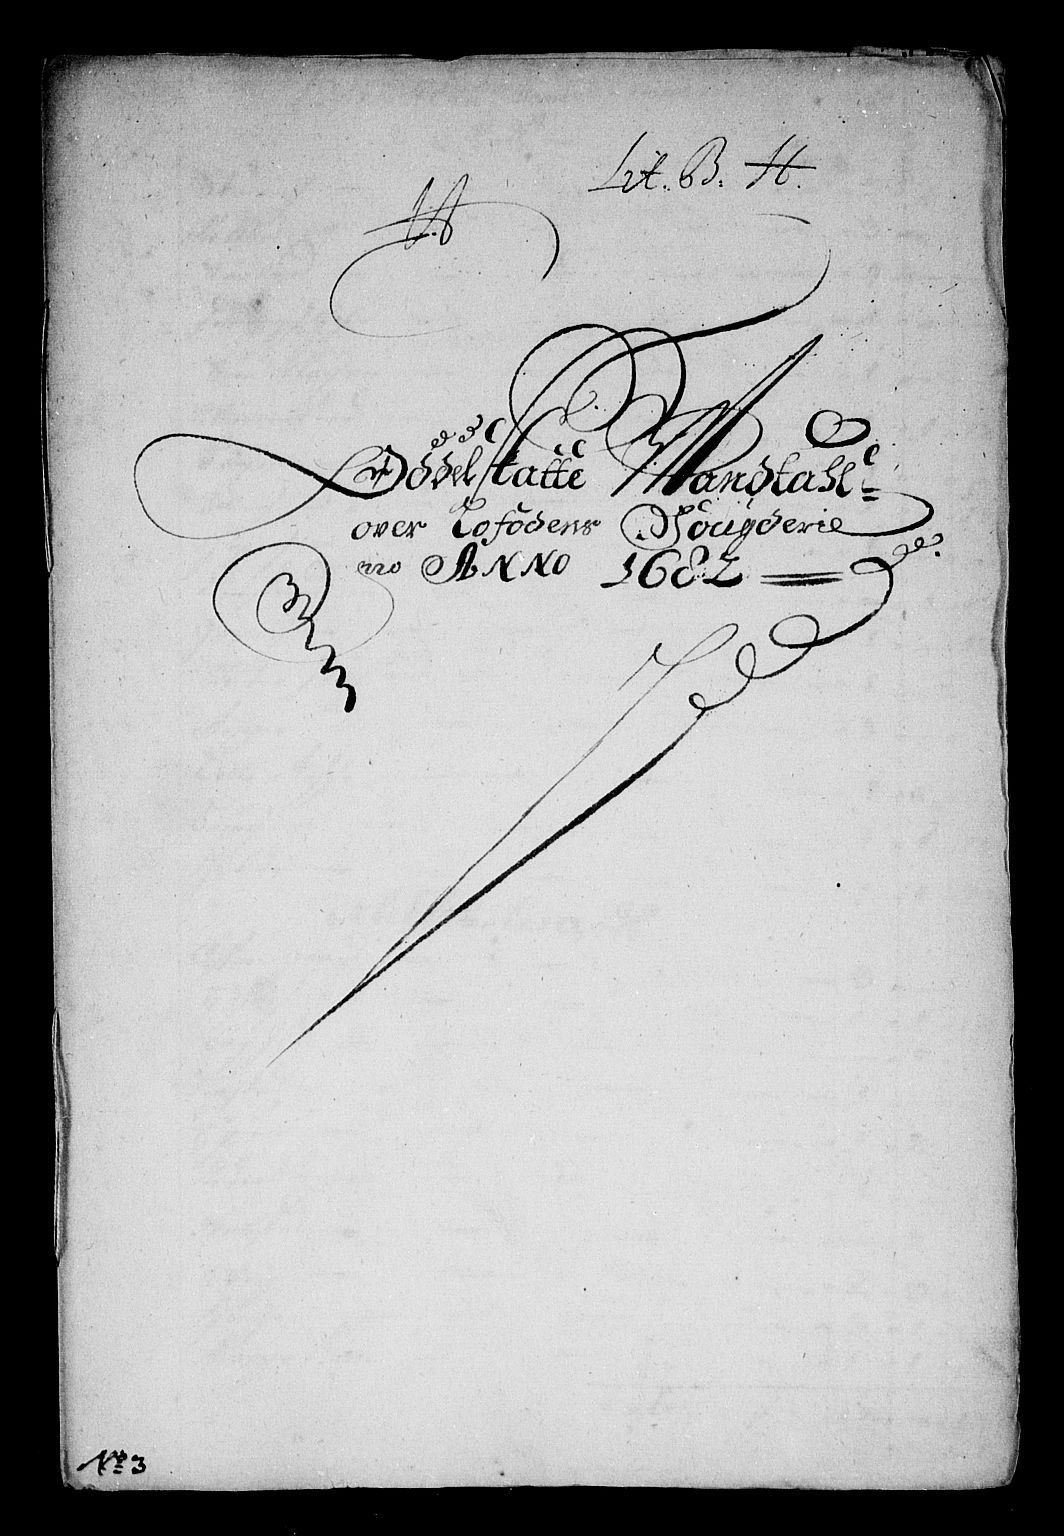 Lit. B. H.
Odelskatte Mandtahl
over Lofodens Fougderie
pro ANNO 1682
No 3